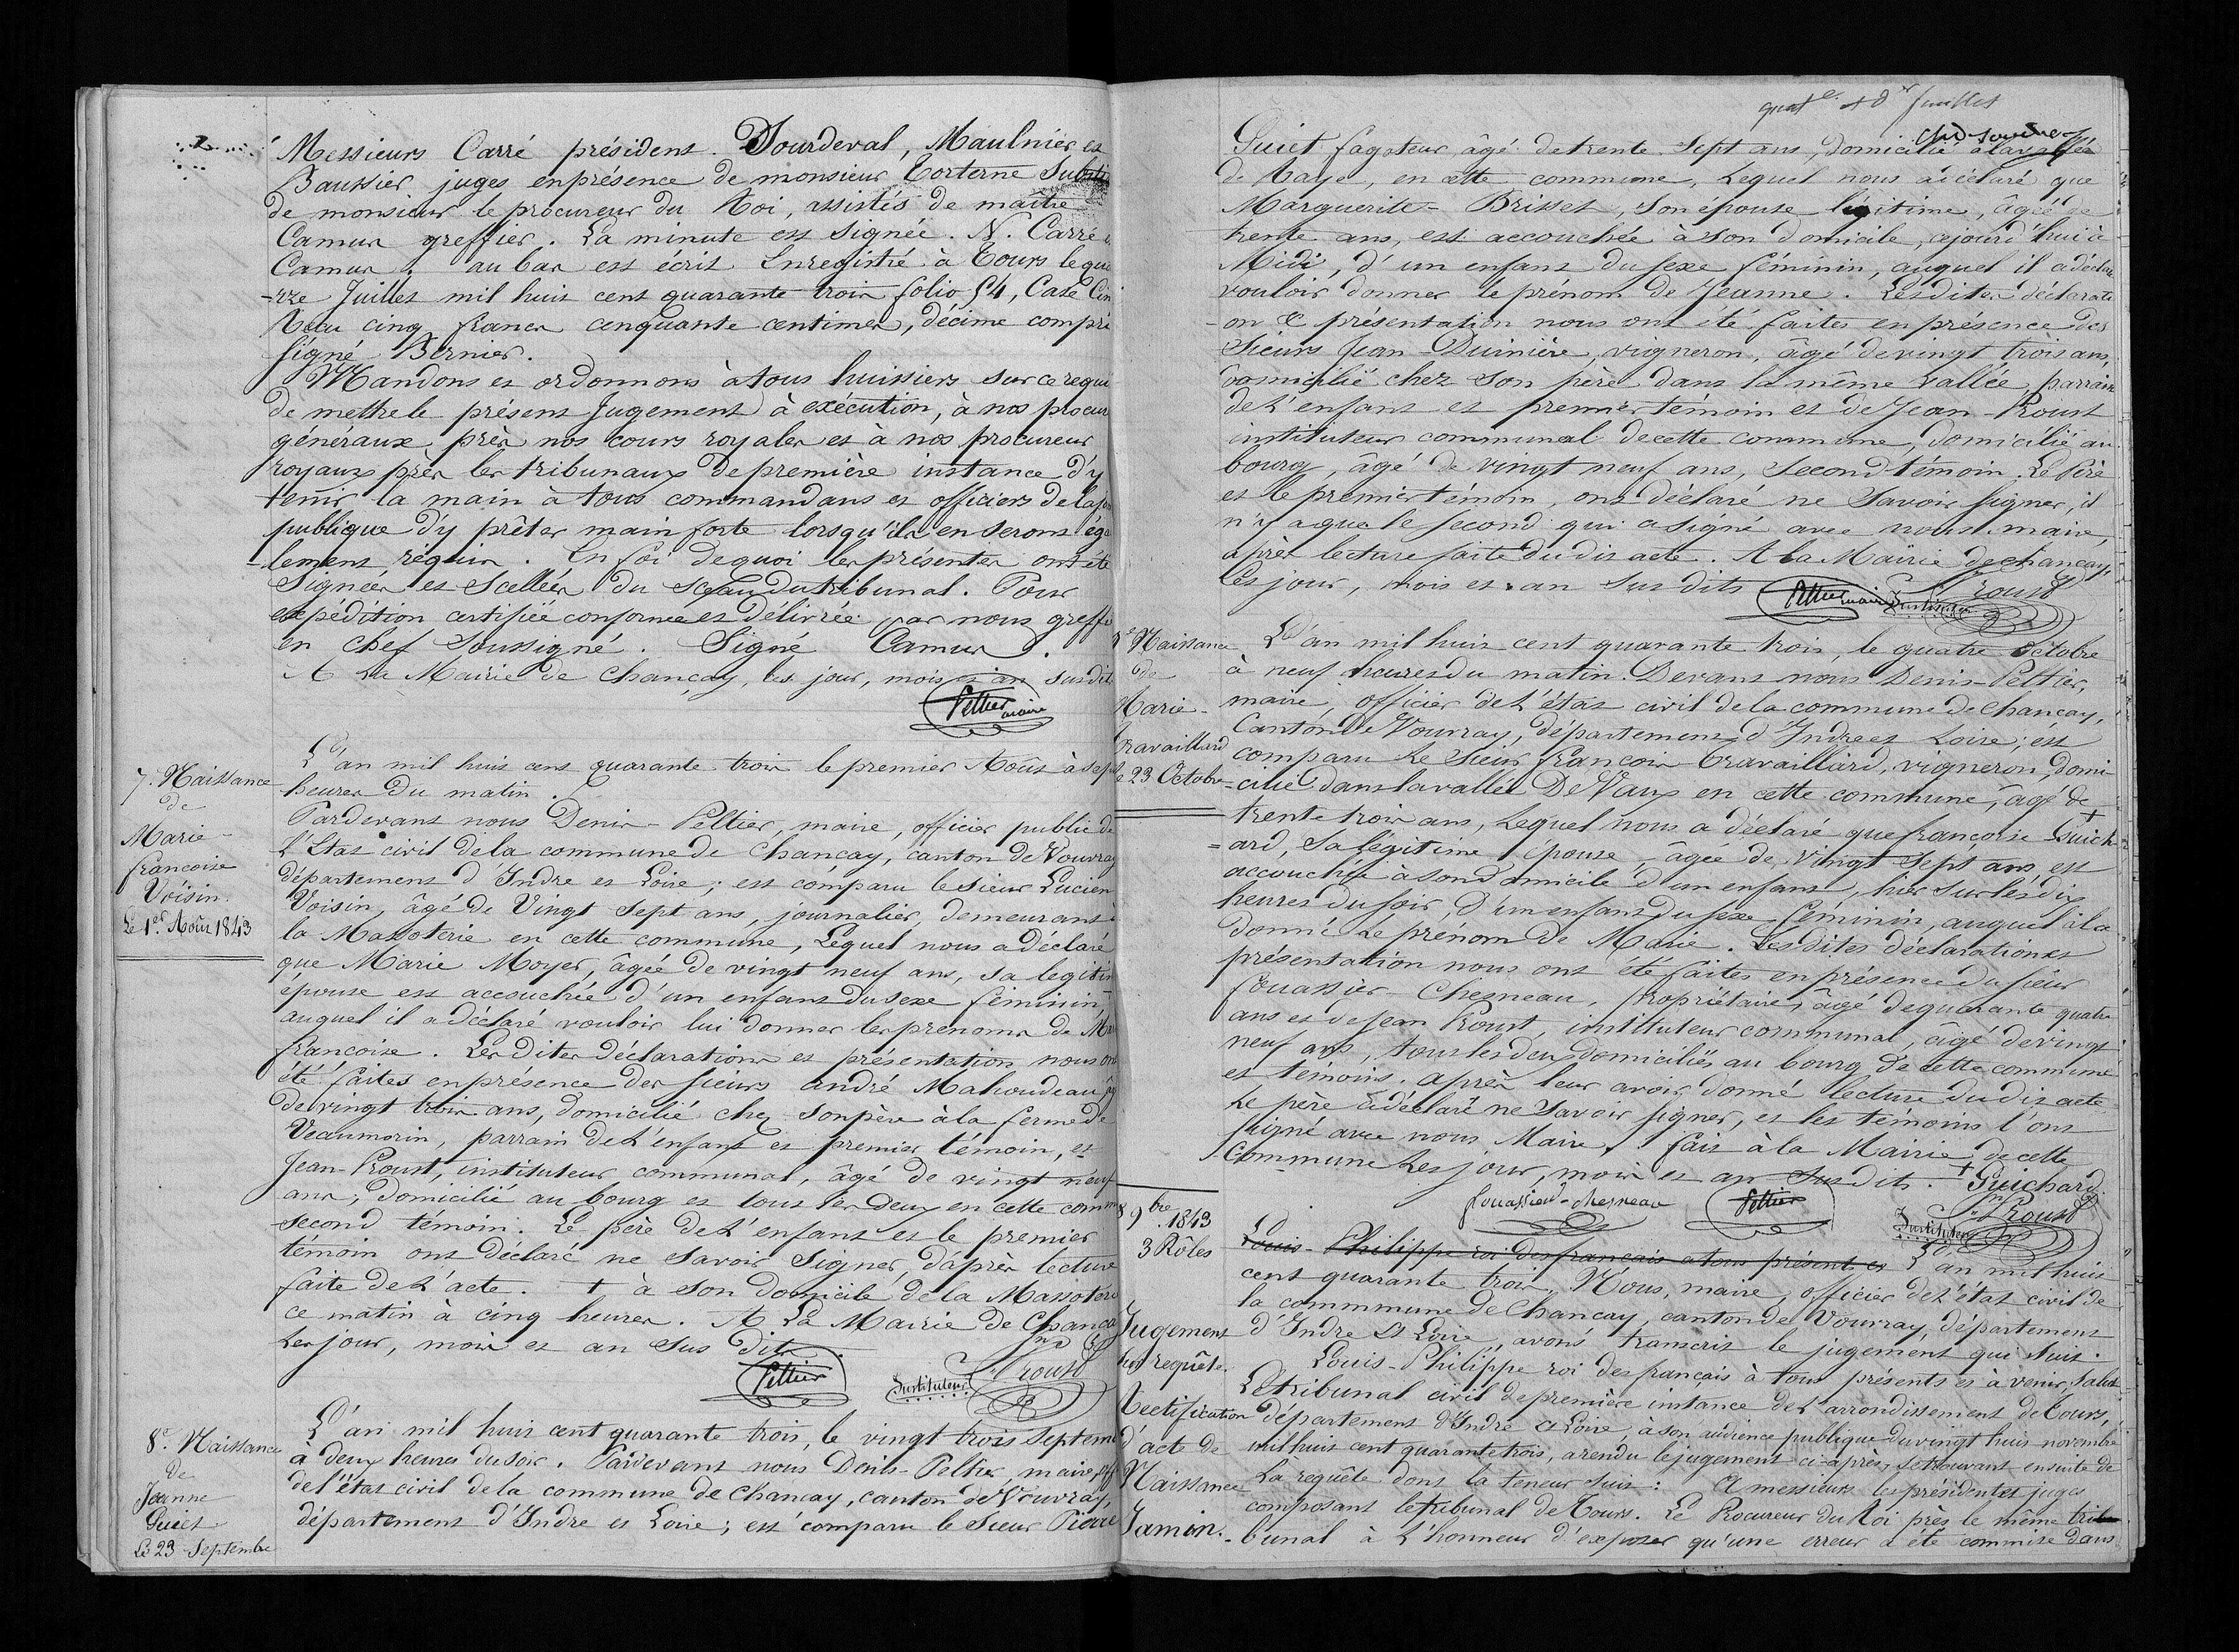 Messieurs Carré président. Dourderal, Maulnier et
Baussier juges enprésence de monsieur Torterue Substitut
de monsieur le procureur du Roi, assistés de maître
Camus greffier. La minute est signée. N. Carré
Camus. au bas est écrit Enregistré à Tours le qua
-rze Juillet mil huit cent quarante trois folio 54, Case Cin
Reçu cinq francs cinquante centimes, décime compris
Signé Bernier.
Mandons et ordonnons à tous huissiers sur ce requis
de mettre le présent Jugement à exécution, à nos procur
généraux près nos cours royales et à nos procureur
royaux près les tribunaux de première instance d'y
tenir la main à tous commandans et officiers de la
publique d'y prêter main forte lorsqu'ils en seront éga
-lement requis. En foi de quoi les présentes ont été
Signées et Scellées du Sceau du tribunal. Pour
expédition certifiée conforme et délivrée par nous greffi
en chef Soussigné. Signé Camus.
A la Mairie de Chançay, les jour, mois et an susdits
Peltier maire
7. Naissance
de
Marie-
françoise
Voisin.
Le 1er Août 1843
L'an mil huit cent quarante trois le premier Août à sept
heures du matin.
Pardevant nous Denis-Peltier, maire, officier public de
l'Etat civil de la commune de Chançay, canton de Vouvray
département d'Indre et Loire; est comparu le sieur Lucien
Voisin, âgé de Vingt Sept ans, journalier, demeurant à
la Massoterie en cette commune, Lequel nous a déclaré
que Marie Moyer, âgée de vingt neuf ans, sa legitim
épouse est accouchée d'un enfant du sexe féminin
auquel il a déclaré vouloir lui donner les prenoms de Ma
françoise. Les dites déclarations et présentation nous ont
été faites enprésence des sieurs andré Mahoudeau
de vingt trois ans, domicilié chez son père à la ferme de
Veaumorin, parrain de l'enfant et premier témoin, et
Jean-Proust, instituteur communal, âgé de vingt neuf
ans, domicilié au bourg et tous les deux en cette comm
second témoin. Le père de l'enfant et le premier
témoin ont déclaré ne savoir Signer, d'après lecture
faite de l'acte. + à son domicile de la Massoterie
ce matin à cinq heures. A La Mairie de Chançay
Les jour, mois et an sus dits
Peltier Instituteur Jn Proust
8e. Naissance
de
Jeanne
Guiet
Le 23 Septembre
L'an mil huit cent quarante trois, le vingt trois Septem
à deux heures du soir. Pardevant nous Denis-Peltier, maire, off
de l'état civil de la commune de Chançay, canton de Vouvray,
département d'Indre et Loire; est comparu le Sieur Pierre
quat e. + d r feuillet
Guiet fagoteur, âgé de trente Sept ans, domicilié à la vallée
de Raye, en cette commune, Lequel nous a déclaré que
Marguerite-Brisset, Son épouse légitime, âgée de
trente ans, est accouchée à son domicile, cejourd'hui à
Midi, d'un enfant du sexe féminin, auquel il a déclaré
vouloir donner le prénom de Jeanne. Lesdites déclarati
-on & présentation nous ont été faites en présence des
Sieurs Jean-Duinière, vigneron, âgé de vingt trois ans,
domicilié chez son père dans la même vallée, parrain
de l'enfant et premier témoin et de Jean-Proust
instituteur communal de cette commune, domicilié au
bourg, âgé de vingt neuf ans, Second témoin. Le Père
et le premier témoin, ont déclaré ne Savoir Signer, il
n'y a que le second qui a signé avec nous maire,
après lecture faite du dit acte. A la Mairie de chançay,
les jour, mois et an Sus dits
Peltier maire Instituteur Proust
9e Naissance
de
Marie-
Travaillard
le 23 Octobre
L'an mil huit cent quarante trois, le quatre Octobre
à neuf heures du matin. Devant nous Denis-Peltier,
maire, officier de l'état civil de la commune de Chançay,
Canton de Vouvray, département d'Indre et Loire; est
comparu Le Sieur françois Travaillard, vigneron, domi
-cilié dans la vallée De Vaux en cette commune, âgé de
trente trois ans, Lequel nous a déclaré que françoise + Guich
=ard, Sa légitime épouse, âgée de Vingt Sept ans, est
accouchée à son domicile d'un enfant, hier sur les dix
heures du soir, d'un enfant du sexe féminin, auquel il a
donné le prénom de Marie. Les dites déclaration et
présentation nous ont été faites en présence du sieur
fouassier-Chesneau, propriétaire, âgé de quarante quatre
ans et de Jean Proust, instituteur communal, âgé de vingt
neuf ans, tous les deux domiciliés au bourg de cette commune
et témoins. après leur avoir donné lecture du dit acte
Le père a déclaré ne Savoir signer, et les témoins l'ont
signé avec nous Maire. fait à la Mairie de cette
Commune Les jour, mois et an Sus dits. + Guichard.
fouassier-chesneau Peltier Jn Proust Instituteur
8 9bre. 1843
3 Rôles
Jugement
sur requête.
Rectification
d'acte de
Naissance
Jamin.
Louis-Philippe roi des francais a tous présents et L'an mil huit
cent quarante trois. Nous, maire, officier de l'état civil de
la commmune de Chançay, canton de Vouvray, département
d'Indre et Loire, avons transcrit le jugement qui suit.
Louis-Philippe roi des français à tous présents et à venir, Salut
Le tribunal civil de première instance de l'arrondissement de Tours,
département d'Indre et Loire, à son audience publique du vingt huit novembre
mil huit cent quarante trois, a rendu le jugement ci-après, se trouvant ensuite de
La requête dont la teneur suit: A messieurs les président et juges
composant le tribunal de Tours. Le Procureur du Roi près le même tri
-bunal à l'honneur d'exposer qu'une erreur a été commise dans